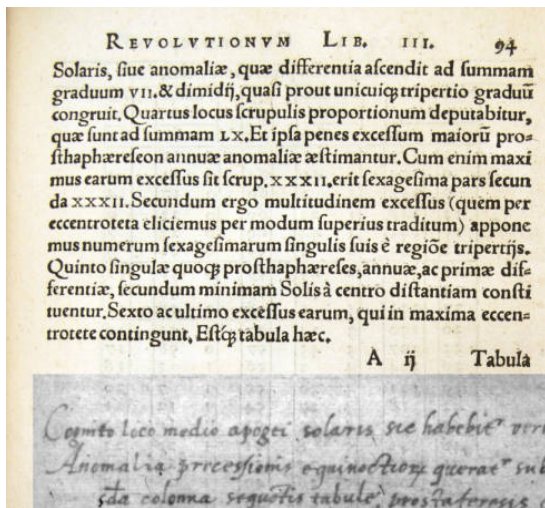 REVOLVTIONVM LIB. III. 94
Solaris, ſiue anomaliæ, quæ differentia aſcendit ad ſummam
graduum VII. & dimidij, quaſi prout unicuiqꝫ tripertio graduũ
congruit. Quartus locus ſcrupulis proportionum deputabitur,
quæ ſunt ad ſummam LX. Et ipſa penes exceſſum maiorũ pro⸗
ſthaphæreſeon annuæ anomaliæ æſtimantur. Cum enim maxi
mus earum exceſſus ſit ſcrup. XXXII. erit ſexageſima pars ſecun
da XXXII. Secundum ergo multitudinem exceſſus (quem per
eccentroteta eliciemus per modum ſuperius traditum) appone
mus numerum ſexageſimarum ſingulis ſuis è regiõe tripertijs.
Quinto ſingulæ quoqꝫ proſthaphæreſes, annuæ, ac primæ dif⸗
ferentiæ, ſecundum minimam Solis à centro diſtantiam conſti
tuentur. Sexto ac ultimo exceſſus earum, qui in maxima eccen⸗
trotete contingunt. Eſtqꝫ tabula hæc.
A ij Tabula
Cognito loco medio apogei solaris sic habebit
Anomalia precessionis equinoctiorum querat sub
colonna sequentis tabule prostaferesis